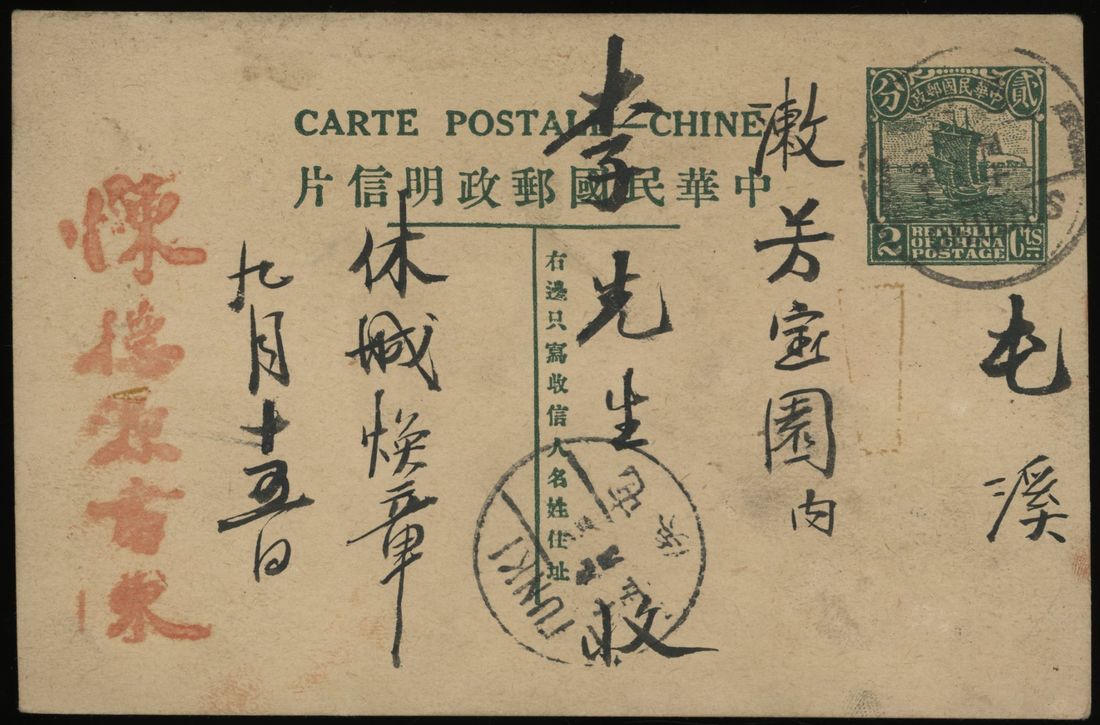 CARTE POSTALE—CHINE
中華民國郵政明信片
中華民國郵政
貳分
2 REPUBLIC OF CHINA POSTAGE Cts
屯溪
漱芳室園内
李先生收
右邊只寫收信人名姓住址
休城煥章
九月十五日
TUNKI
屯溪